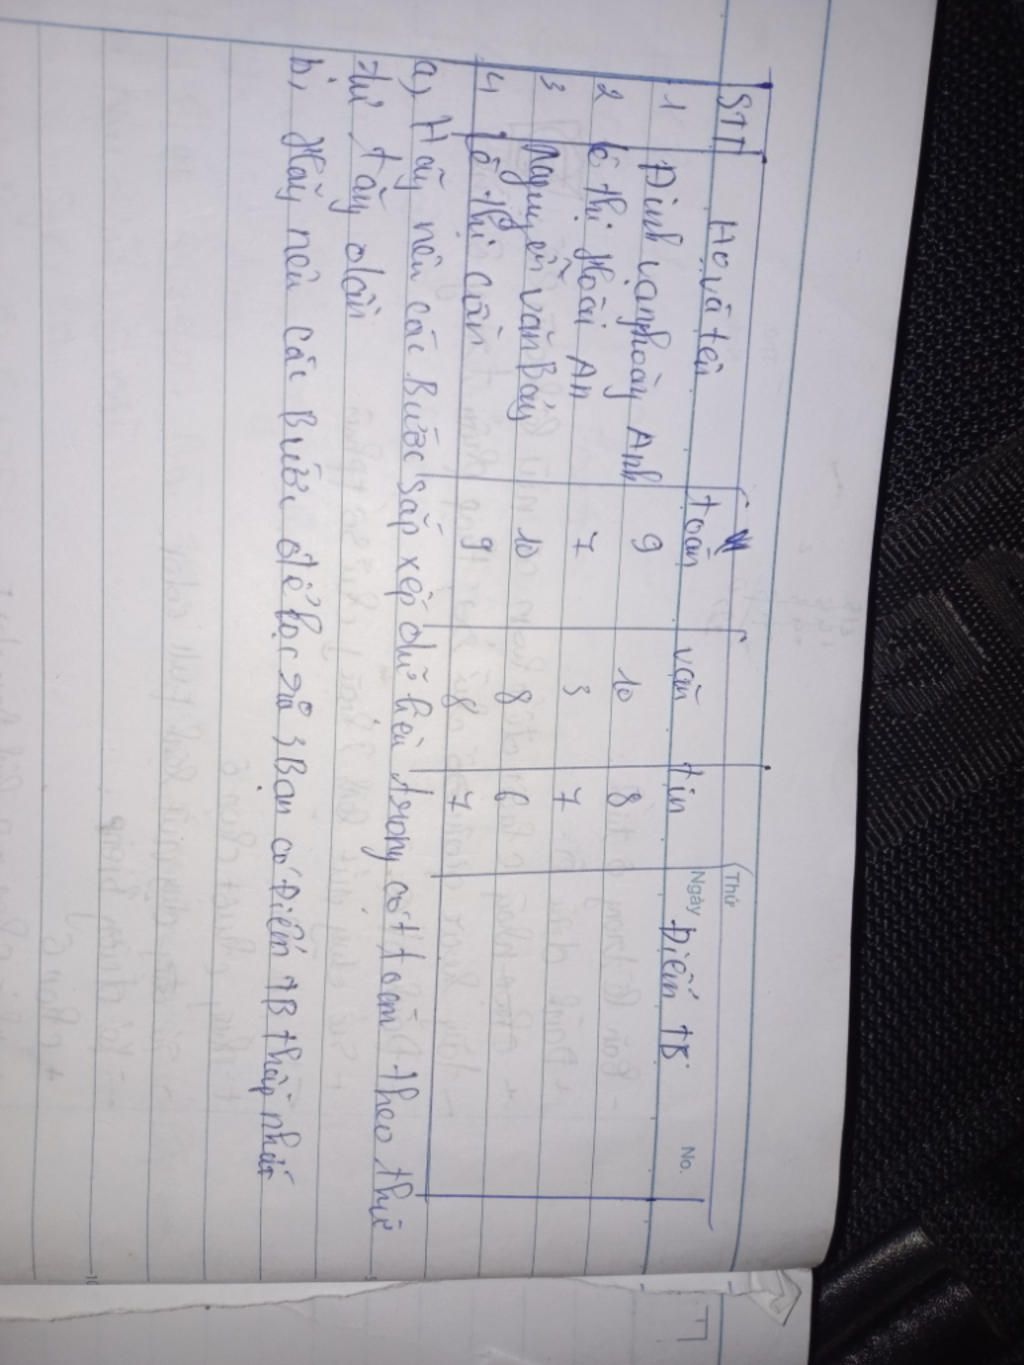 Thứ
Ngày No.
STT Họ và tên toán văn tin Điểm TB
1 Đinh văn hoàng Anh 9 10 8
2 lô thị Hoài An 7 3 7
3 Nguyễn văn Bảy 10 8 6
4 lô thị cần 9 8 7
a) Hãy nêu các Bước sắp xếp dữ liệu trong cột toán theo thứ
thứ tăng dần
b, Hãy nêu các Bước để lọc ra 3 Bạn có Điểm TB thấp nhất